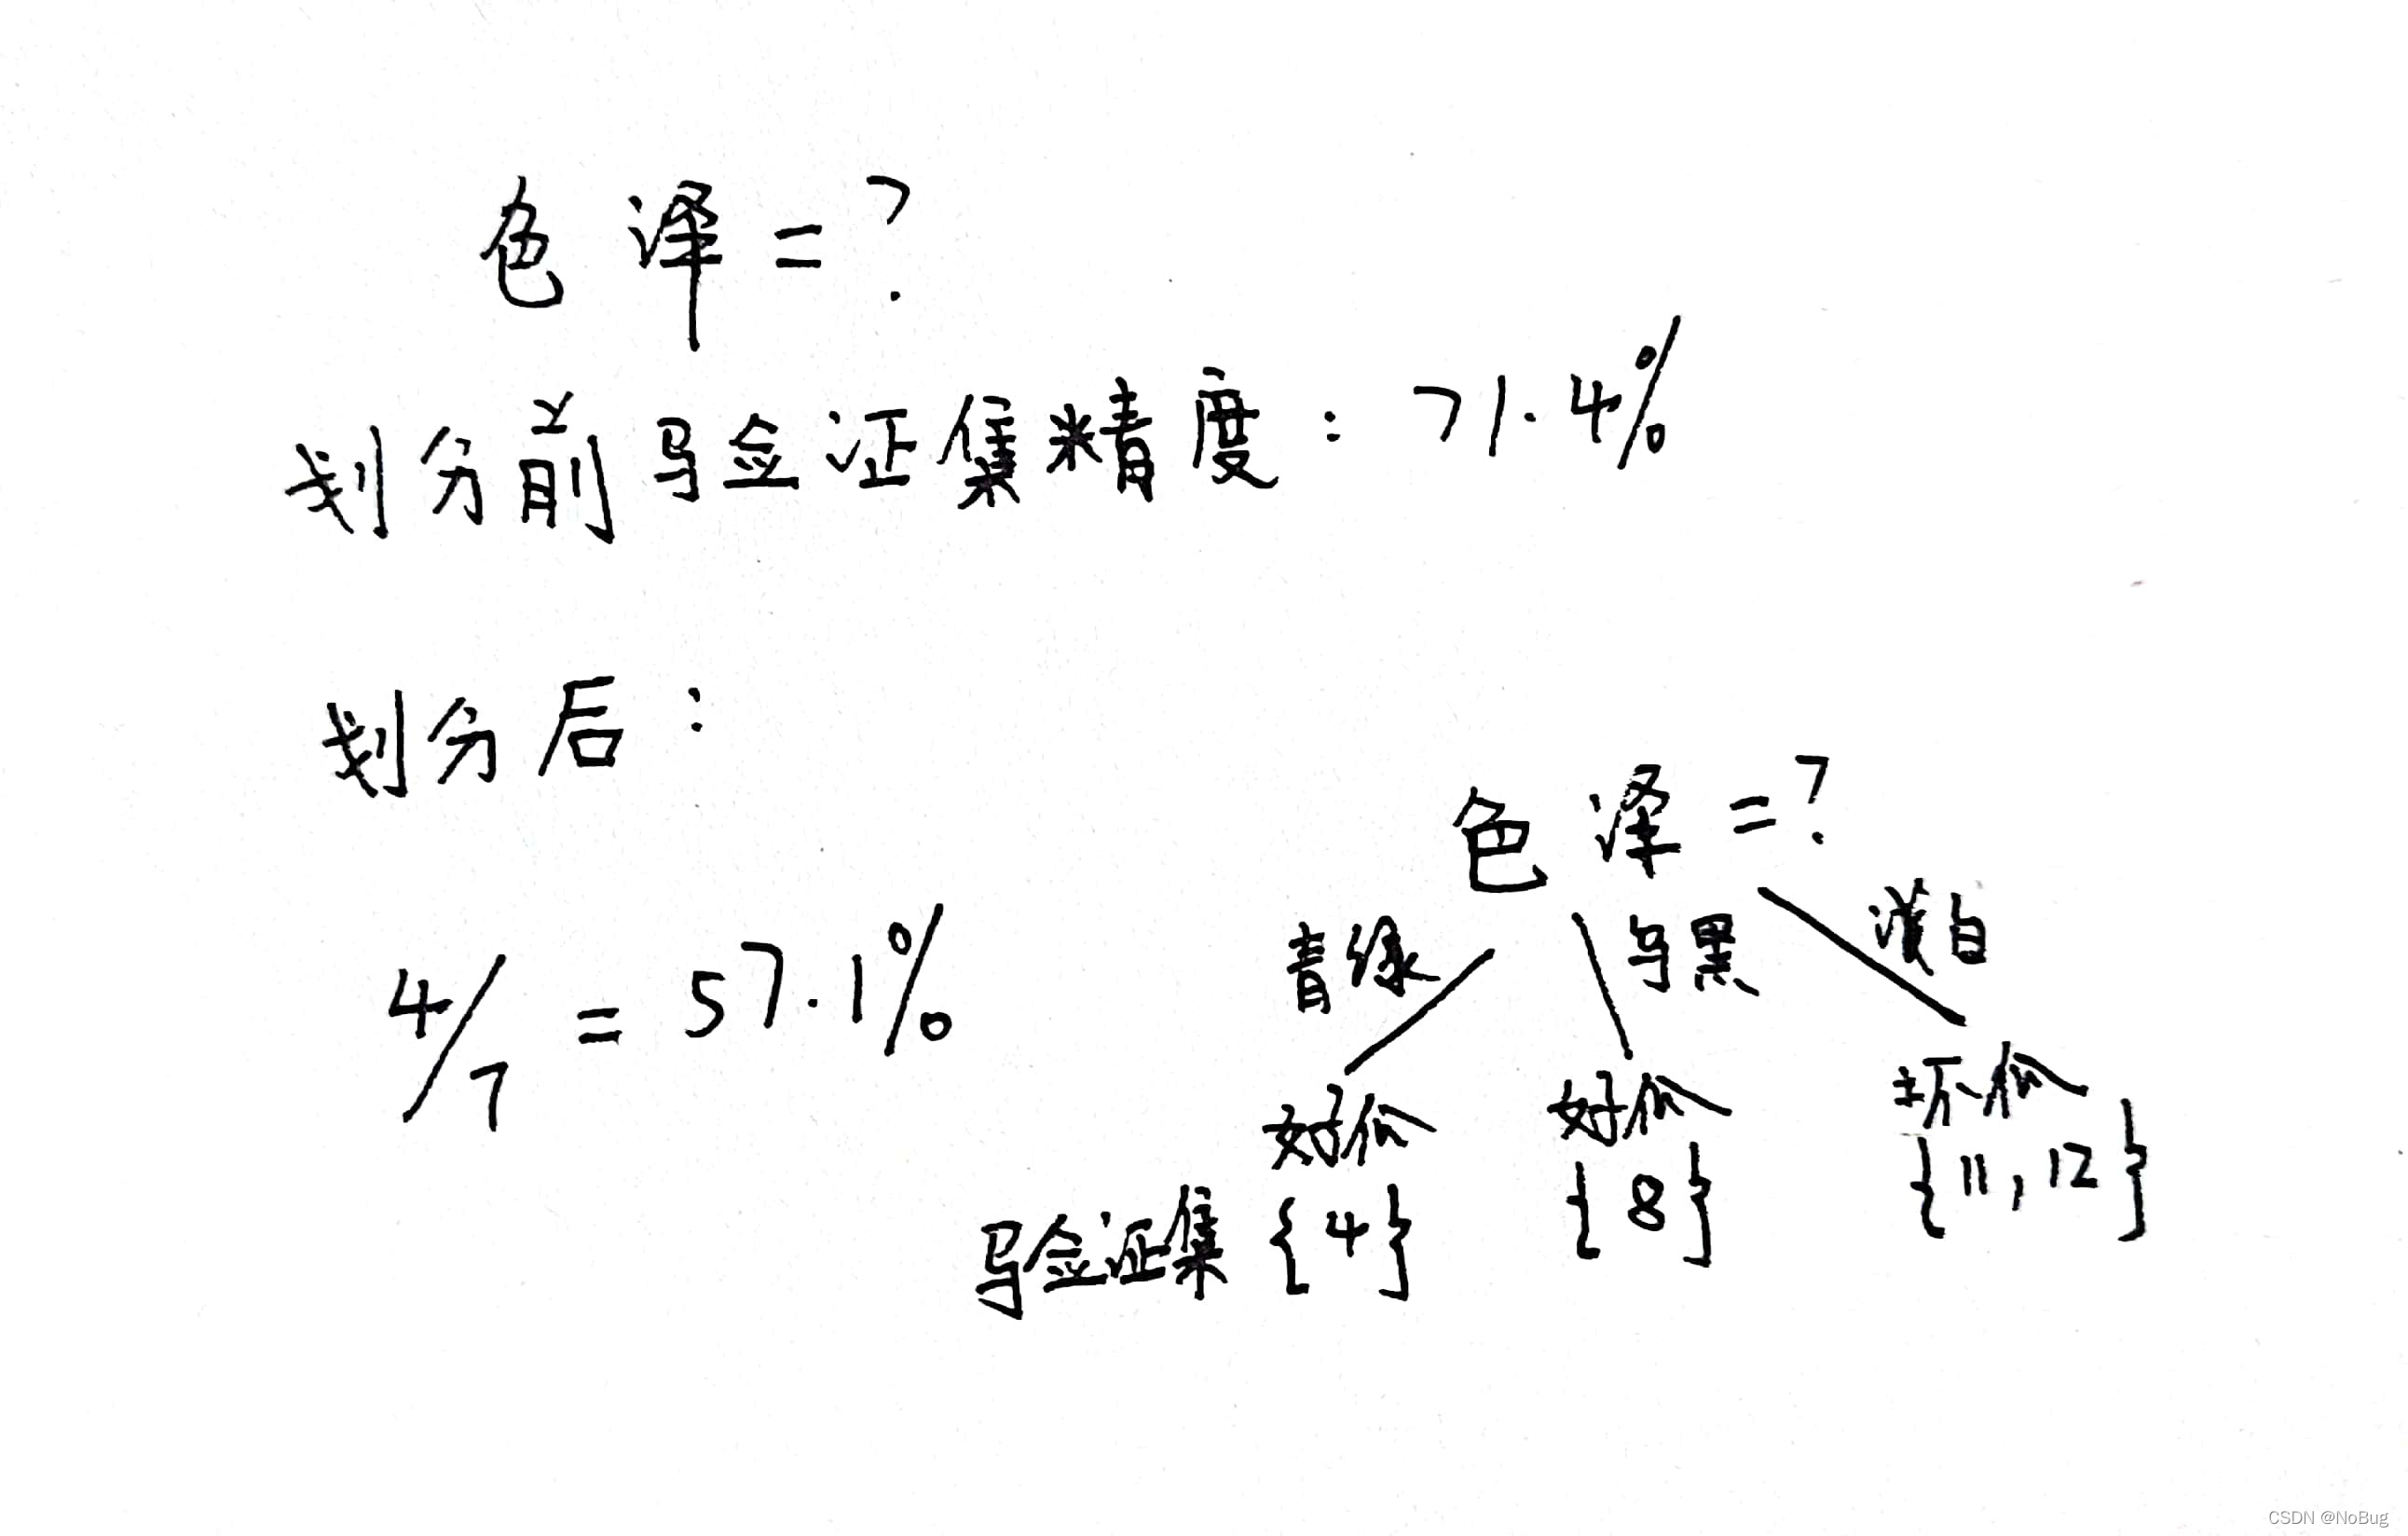 色泽=?
划分前验证集精度:71.4%
划分后:
色泽=?
青绿 乌黑 浅白
4/7 = 57.1%
好瓜 好瓜 坏瓜
验证集 {4} {8} {11,12}
CSDN @NoBug